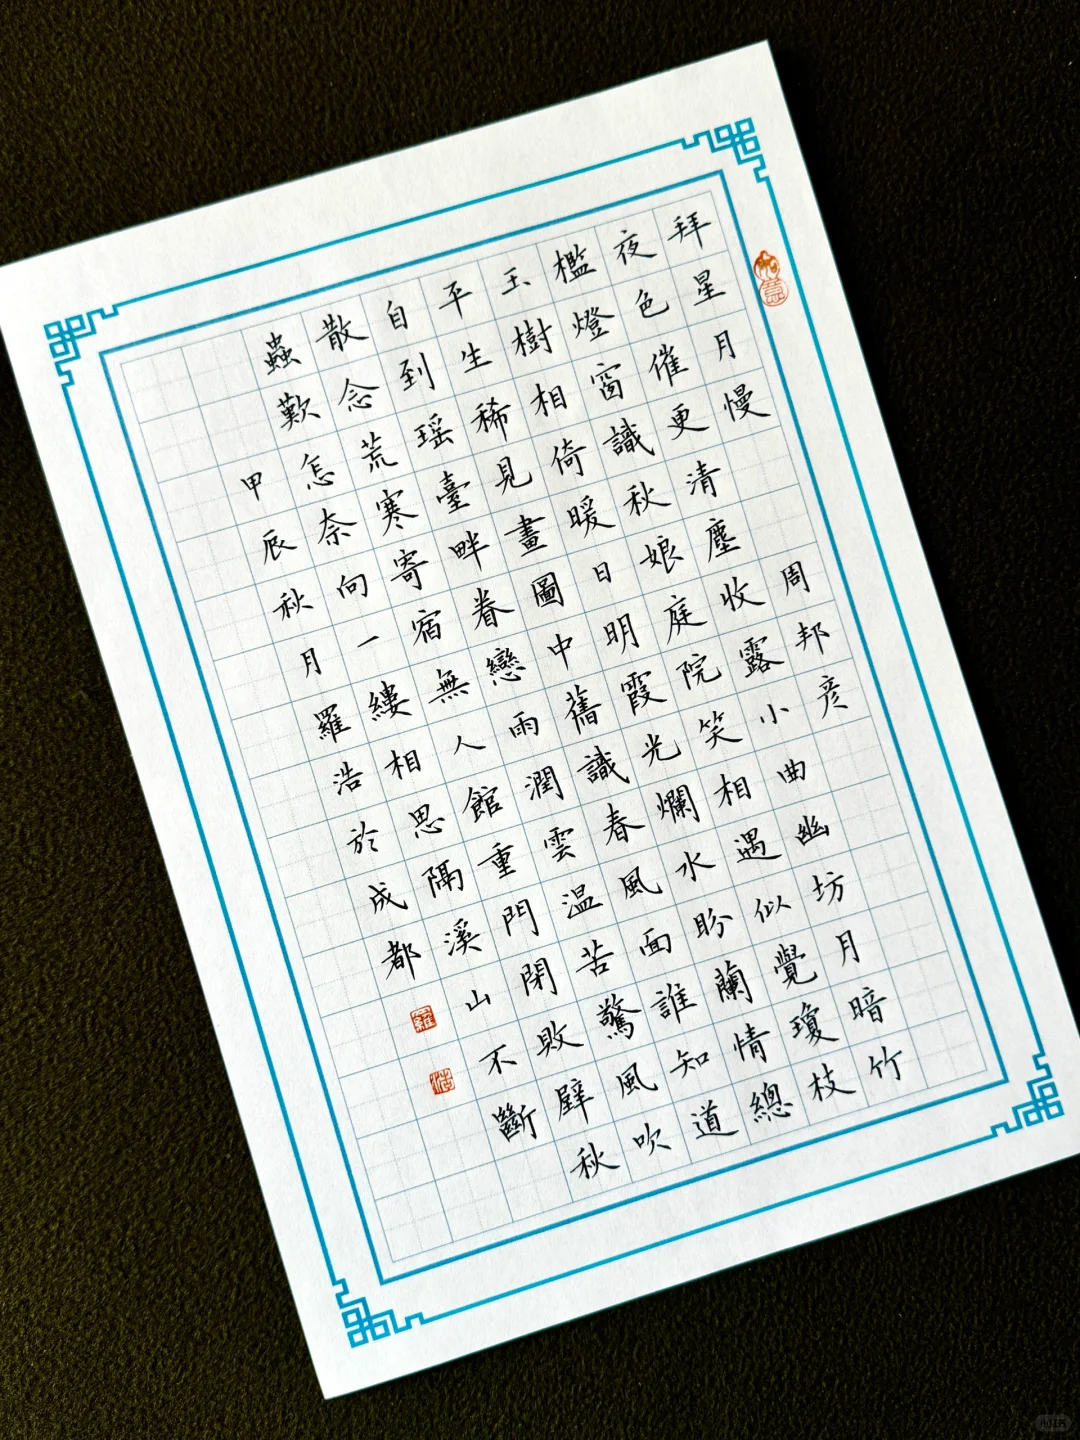 拜星月慢 周邦彦
夜色催更清塵收露小曲幽坊月暗竹
檻燈窗識秋娘庭院笑相遇似覺瓊枝
玉樹相倚暖日明霞光爛水盼蘭情總
平生稀見畫圖中舊識春風面誰知道
自到瑶臺畔眷戀雨潤雲温苦驚風吹
散念荒寒寄宿無人館重門閉敗壁秋
蟲歎怎奈向一縷相思隔溪山不斷
甲辰秋月羅浩於成都
羅
浩